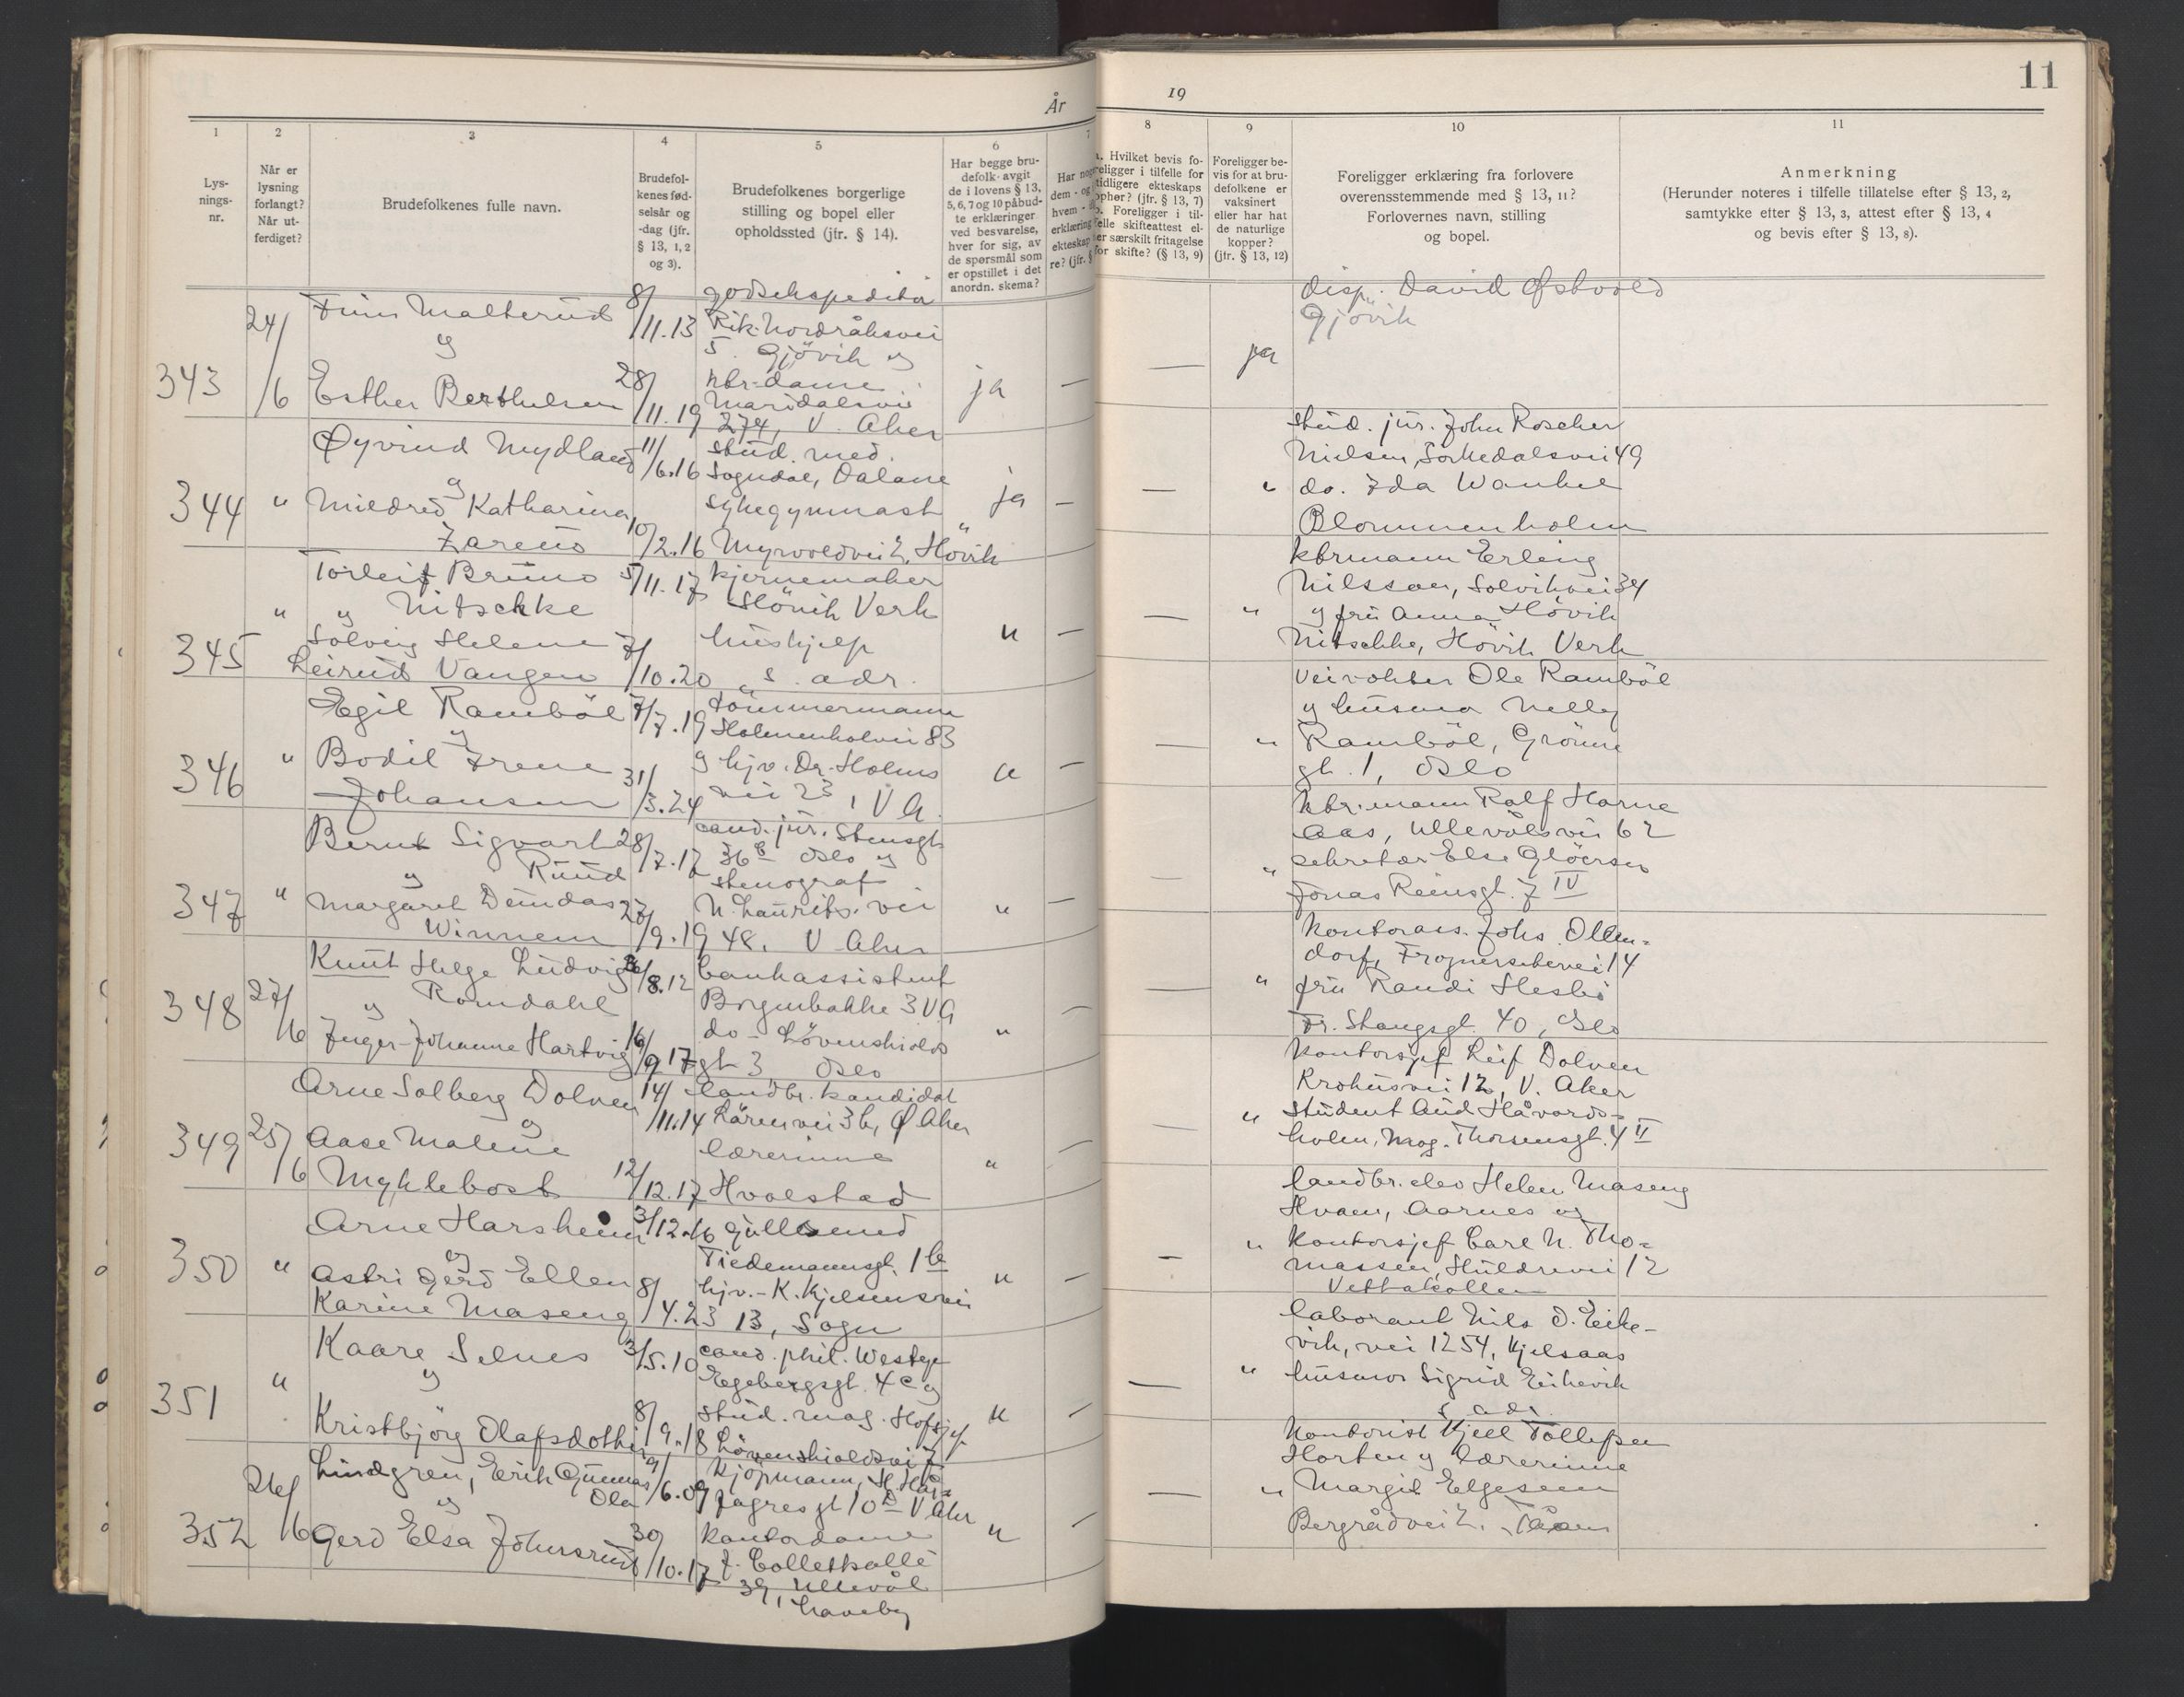 År 19
11
1 2 3 4 5 6 7
8 9 10 11
Lys-
nings-
nr.
Når er
lysning
forlangt?
Når ut-
ferdiget?
Brudefolkenes fulle navn.
Brudefol-
kenes fød-
selsår og
-dag (jfr.
§ 13, 1, 2
og 3).
Brudefolkenes borgerlige
stilling og bopel eller
opholdssted (jfr. § 14).
Har begge bru-
defolk avgit
de i lovens § 13,
5, 6, 7 og 10 påbud-
te erklæringer
ved besvarelse,
hver for sig, av
de spørsmål som
er opstillet i det
anordn. skema?
Har nog
dem - og
hvem -
erklæring
ekteskap
re? (jfr. §
Hvilket bevis fo-
religger i tilfelle for
tidligere ekteskaps
ophør? (jfr. § 13, 7)
Foreligger i til-
felle skifteattest el-
er særskilt fritagelse
for skifte? (§ 13, 9)
Foreligger be-
vis for at bru-
defolkene er
vaksinert
eller har hat
de naturlige
kopper?
(jfr. § 13, 12)
Foreligger erklæring fra forlovere
overensstemmende med § 13, 11?
Forlovernes navn, stilling
og bopel.
Anmerkning
(Herunder noteres i tilfelle tillatelse efter § 13, 2,
samtykke efter § 13, 3, attest efter § 13, 4
og bevis efter § 13, 8).
343
24/6
Finn Malterud
og
Esther Berthelsen
8/11.13
28/11.19
godsekspeditør
Rik. Nordråksvei
5. Gjövik og
kbr-dame
Maridalsvei
274, V. Aker
ja — — ja
disp. David Østvold
Gjövik
344 "
Øyvind Mydland
og
Mildred Katharina
Zareno
11/6.16
10/2.16
stud. med.
Sogndal, Dalane
sykegymnast
Myrvoldvei 2, Hövik
ja — — "
stud. jur. John Roscher
Nielsen, Sörkedalsvei 49
do. Ida Wankel
Blommenholm
345 "
Torleif Bruno
og Nitschke
Solveig Helene
Leirud Vangen
5/11.17
7/10.20
kjernemaker
Hövik Verk
hushjelp
s. adr.
" — — "
kbrmann Erling
Nilsson, Solvikvei 34
og fru Anna Hövik
Nitschke, Hövik Verk
346 "
Egil Ramböl
og
Bodil Irene
Johansen
7/7.19
31/3.24
tömmermann
Holmenkolvei 83
og hjv. Dr. Holms
vei 23, V A.
" — — "
Veivokter Ole Ramböl
og husmor Nelly
Ramböl, Grönne
gt. 1, Oslo
347 "
Bernt Sigvart
og Ruud
Margaret Dundas
Winnem
28/7.17
27/9.19
cand. jur. Stensgt
36 B Oslo og
stenograf
N. Laurits. vei
48, V Aker
" — — "
kbr.mann Ralf Harne
Aas, Ullevålsvei 62
sekretær Else Glöersen
Jonas Reinsgt. 7 IV
348
27/6
Knut Helge Ludvig
og Romdahl
Inger-Johanne Hartvig
/8.12
16/9 17
bankassistent
Borgenbakke 3 V.A
do - Lövenskiolds
gt 3 Oslo
" — — "
Kontorass. Johs. Ollen-
dorf, Frognersetervei 14
fru Randi Hesbö
Fr. Stangsgt. 40, Oslo
349
25/6
Arne Solberg Dolven
og
Aase Malene
Myklebost
14/11.14
12/12.17
landbr. kandidat
Lörenvei 3 b, Ø Aker
lærerinne
Hvalstad
" — — "
Kontorsjef Leif Dolven
Krohusvei 12, V. Aker
student Aud Håvards-
holm, Mag. Thorsensgt. 4 II
350 "
Arne Harsheim
og
Astri Gerd Ellen
Karine Maseng
3/12.16
8/4.23
gullsmed
Tiedemannsgt. 1 b
hjv. - K. Kjelsensvei
13, Sogn
" — — "
landbr. elev Helen Maseng
Hvam, Aarnes og
Kontorsjef Carl N. Tho-
massen, Huldrevei 12
Vettakollen
351 "
Kaare Selnes
og
Kristbjörg Olafsdottir
3/5.10
8/9.18
cand. phil. Westye
Egebergsgt. 4 c og
stud. mag. Hofsjef
Lövenskioldsvei 7
" — — "
laborant Nils O. Eike-
vik, vei 1254, Kjelsaas
husmor Sigrid Eikevik
s. adr.
352
26/6
Lindgren, Erik Gunnar
og Ola
Gerd Elsa Johnsrud
/6.09
30/10.17
kjöpmann, H. Hår-
fagresgt 10 D V Aker
Kontordame
J. Colletsallé
39, Ullevål
haveby
" — — "
Kontorist Kjell Tollefsen
Horten og lærerinne
Margit Elgesem
Bergrådvei 2. Tåsen